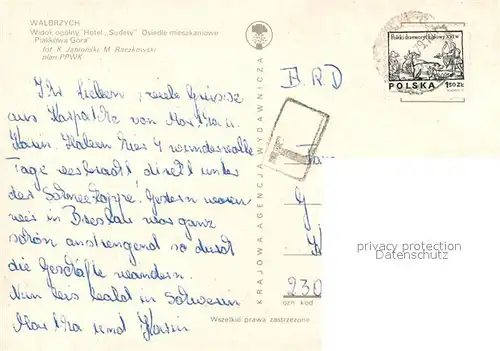 WAŁBRZYCH
Widok ogólny "Hotel „Sudety" Osiedle mieszkaniowe
"Piaskowa Góra"
fot. K. Jabłoński, M. Raczkowski
plan: PPWK
KRAJOWA AGENCJA WYDAWNICZA
BRD
Polski drzeworyt ludowy XVI w.
POLSKA 1,50 ZŁ
Ihr Lieben, viele Grüsse
aus Karpatke von Martha u.
Karin. Haben hier 4 wundervolle
Tage verbracht direkt unter
der Schneekoppe! Gestern waren
wir in Breslau war ganz
schön anstrengend so durch
die Geschäfte wandern.
Nun bis bald in Schwerin
Martha und Karin
G
230
ozn. kod
Wszelkie prawa zastrzeżone
privacy protection
Datenschutz